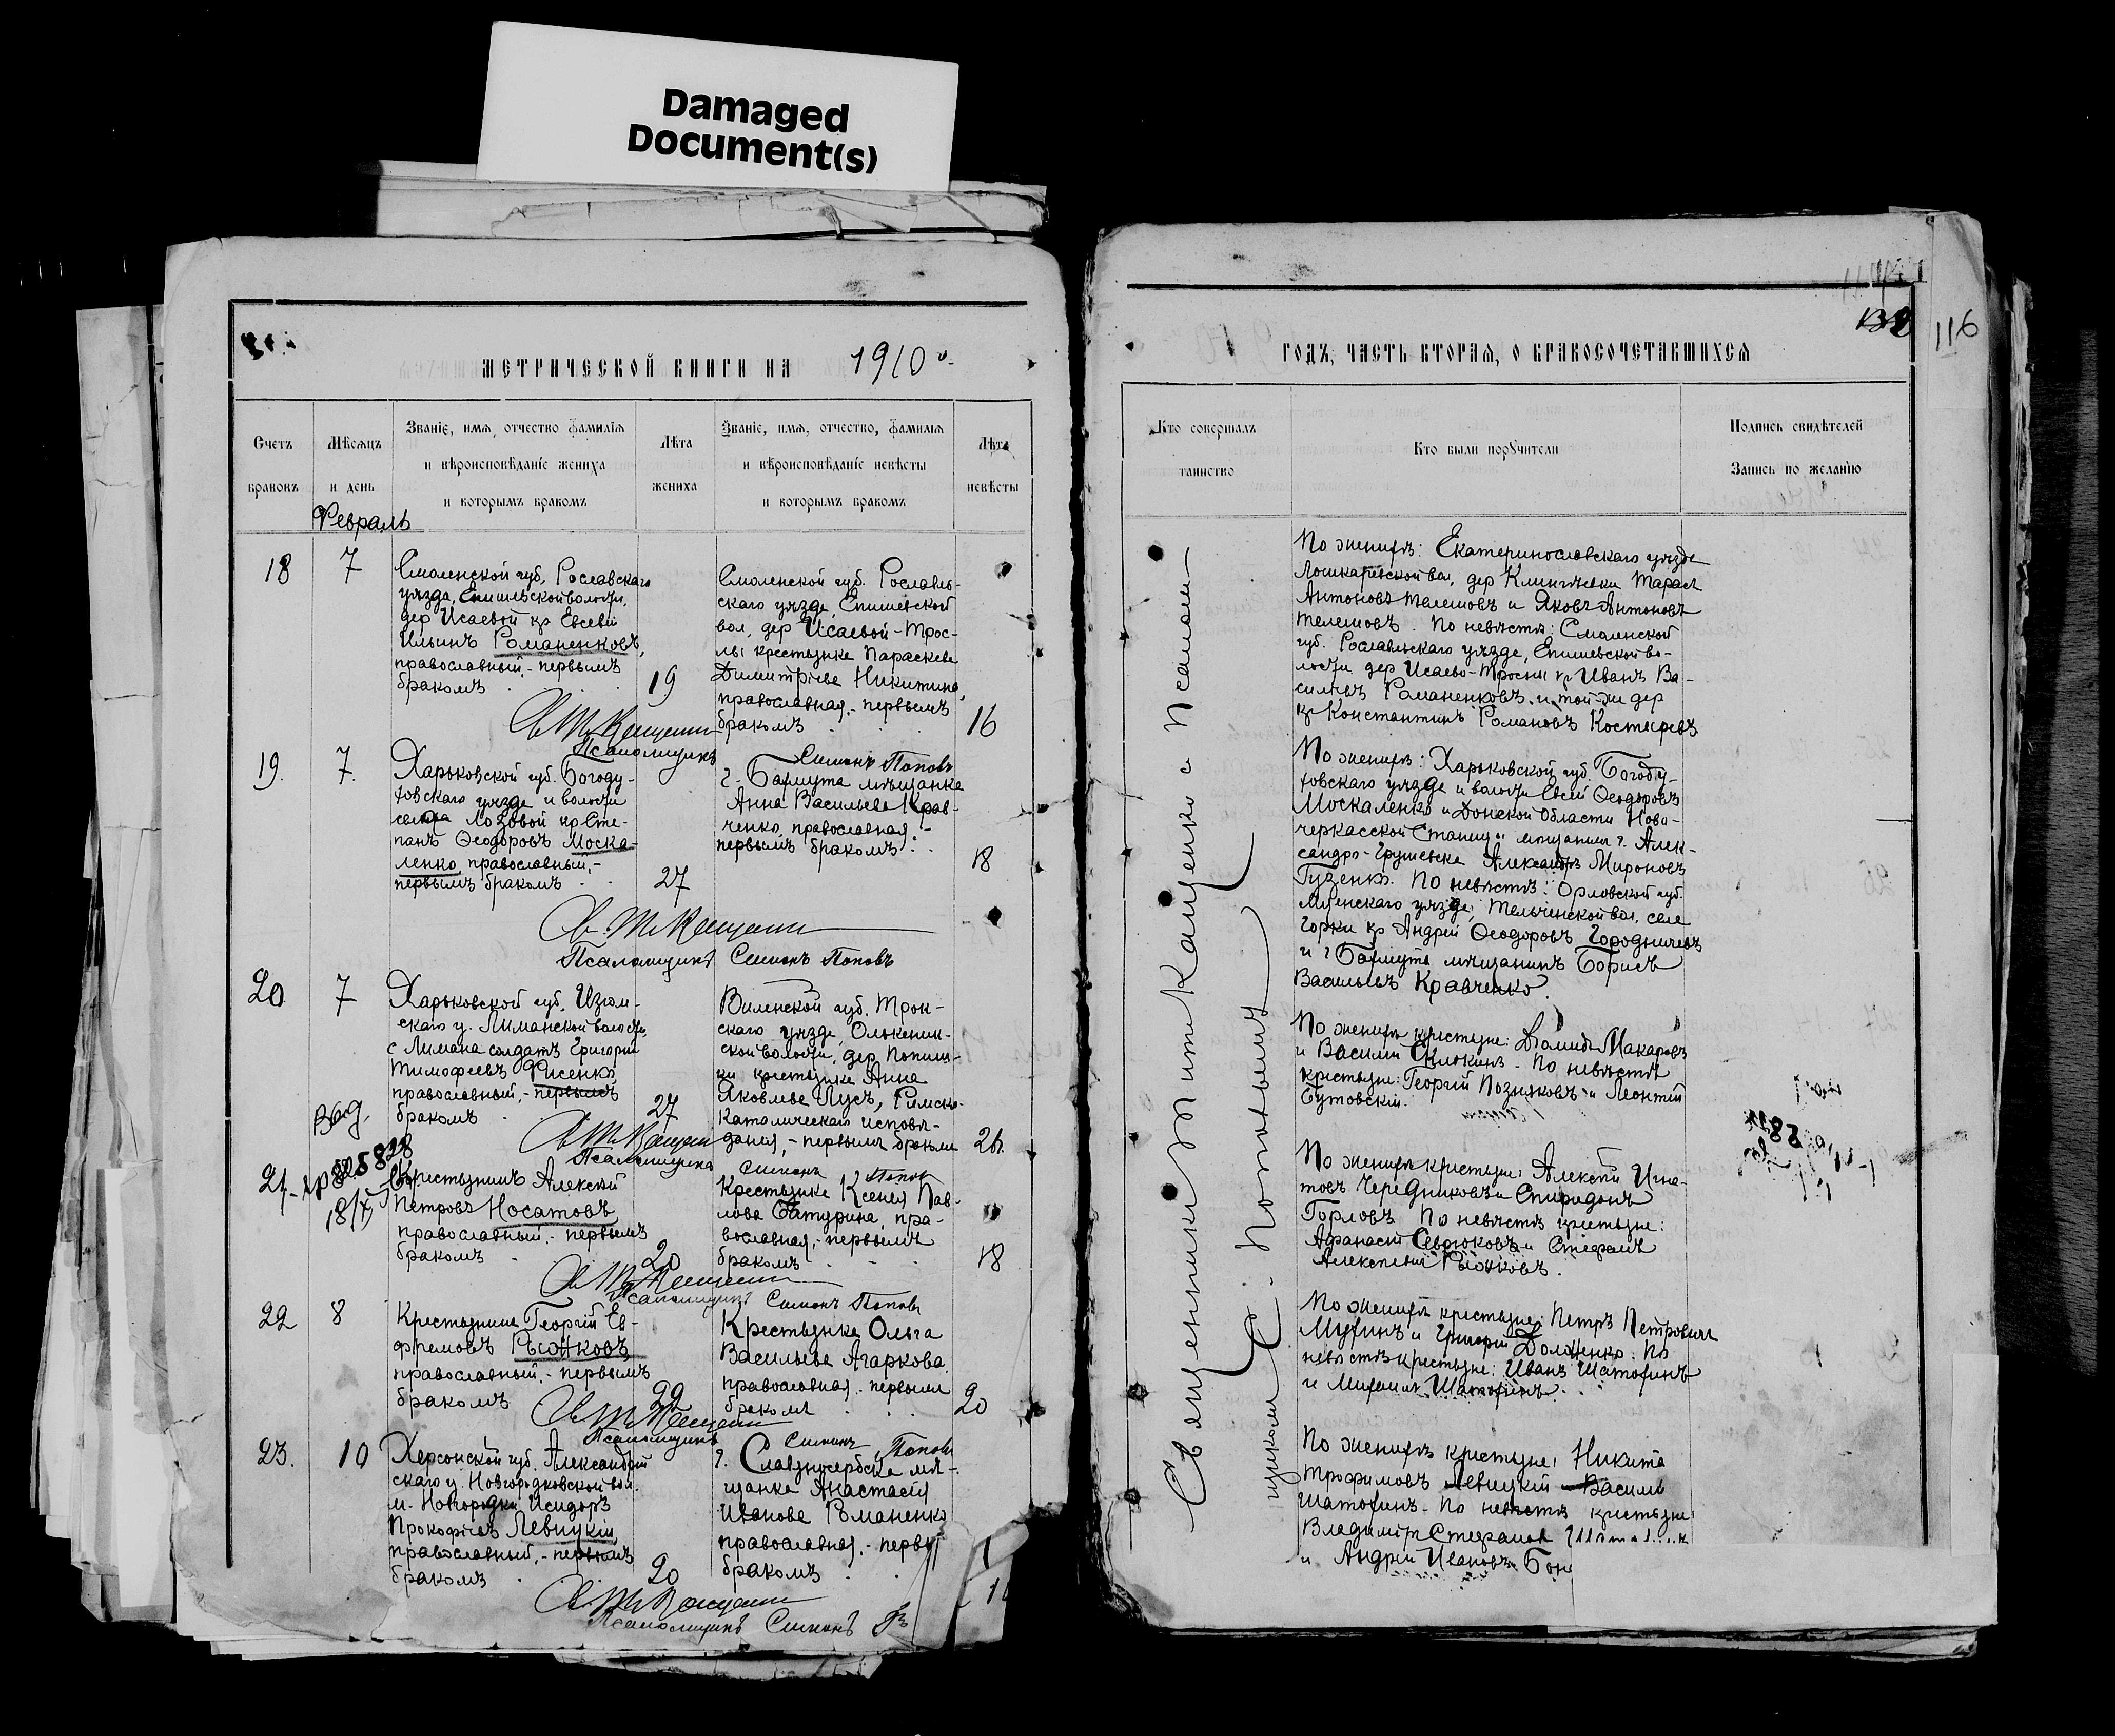 Damaged
Document(s)
МЕТРИЧЕСКОЙ КНИГИ НА 1910
Счетъ
браковъ
Мѣсяцъ
и день
Званіе, имя, отчество фамилія
и вѣроисповѣданіе жениха
и которымъ бракомъ
Лѣта
жениха
Званіе, имя, отчество, фамилія
и вѣроисповѣданіе невѣсты
и которымъ бракомъ
Лѣта
невѣсты
Февраль
18
7
Смоленской губ, Рославскаго
уѣзда, Епишевской волости,
дер Исаевой кр Евсевій
Ильинъ Романенковъ,
православный,- первымъ
бракомъ
19
Смоленской губ. Рославль-
скаго уѣзда, Епишевской
вол, дер Исаевой-Трос-
ны крестьянка Параскева
Димитріева Никитина,
православная,- первымъ
бракомъ
16
Псаломщикъ Симонъ Поповъ
19.
7.
Харьковской губ. Богоду-
ховскаго уѣзда и волости
села Лозовой кр Сте-
панъ Ѳеодоровъ Моска-
ленко, православный,-
первымъ бракомъ
27
г. Бахмута мѣщанка
Анна Васильева Крав-
ченко, православная,-
первымъ бракомъ
18
Псаломщикъ Симонъ Поповъ
20
7
Харьковской губ, Изюм-
скаго у. Лиманской волости,
с Лимана солдатъ Григорій
Тимофеевъ Фисенко,
православный,- первымъ
бракомъ
27
Виленской губ. Трок-
скаго уѣзда, Олькеник-
ской волости, дер
крестьянка Анна
Яковлева Лусъ, Римско-
Католическаго исповѣ-
данія,- первымъ бракомъ
26.
Псаломщикъ Симонъ Поповъ
21-
18/
Крестьянинъ Алексѣй
Петровъ Носатовъ
православный,- первымъ
бракомъ
20
Крестьянка Ксенія Пав-
лова Батурина, пра-
вославная,- первымъ
бракомъ
18
Псаломщикъ Симонъ Поповъ
22
8
Крестьянинъ Георгій Ев-
фремовъ Рыжковъ,
православный,- первымъ
бракомъ
22
Крестьянка Ольга
Васильева Агаркова,
православная,- первымъ
бракомъ
20
Псаломщикъ Симонъ Поповъ
23.
10
Херсонской губ. Александрій
скаго у. Новгородковской вол.
м. Новгородки Исидоръ
Прокофіевъ Левицкій,
православный,- первымъ
бракомъ
20
г. Славяносербска мѣ-
щанка Анастасія
Иванова Романенко
православная,- первы
бракомъ
Псаломщикъ Симонъ
ГОДЪ, ЧАСТЬ ВТОРАЯ, О БРАКОСОЧЕТАВШИХСЯ
116
Кто совершалъ
таинство
Кто были поручители
Подпись свидѣтелей
Запись по желанію
Священникъ Кащенко с Псалом-
щикомъ С. Поповымъ
По женихѣ: Екатеринославскаго уѣзда
Лошкаревской вол, дер Тарасъ
Антоновъ Телешовъ и Яковъ Антоновъ
Телешовъ. По невѣстѣ: Смоленской
губ. Рославльскаго уѣзда, Епишевской во-
лости дер Исаево-Тросны кр Иванъ Ва-
сильевъ Романенковъ и той-же дер
кр Константинъ Романовъ Костыревъ
По женихѣ: Харьковской губ. Богоду-
ховскаго уѣзда и волости Евсей Ѳеодоровъ
Москаленко и Донской Области Ново-
черкасской Станицы мѣщанинъ г. Алек-
сандро-Грушевска Александръ Мироновъ
Гузенко. По невѣстѣ: Орловской губ.
Мценскаго уѣзда, Тельченской вол, села
Горки кр Андрей Ѳеодоровъ Городничевъ
и г Бахмута мѣщанинъ Борисъ
Васильевъ Кравченко.
По женихѣ крестьяне: Діомидъ Макаровъ
и Василій Склюкинъ - По невѣстѣ
крестьяне: Георгій Позняковъ и Леонтій
Бутовскій.
По женихѣ крестьяне: Алексѣй Игна-
товъ Чередниковъ и Спиридонъ
Горловъ По невѣстѣ крестьяне:
Афанасій Севрюковъ и Стефанъ
Алексѣевъ Рыжковъ.
По женихѣ крестьяне: Петръ Петровичъ
Мухинъ и Григорій Доложенко. По
невѣстѣ крестьяне: Иванъ Шатохинъ
и Михаилъ Шатохинъ.
По женихѣ крестьяне: Никита
Трофимовъ Левицкій Василій
Шатохинъ - По невѣстѣ крестьяне
Владиміръ Стефановъ
и Андрей Ивановъ